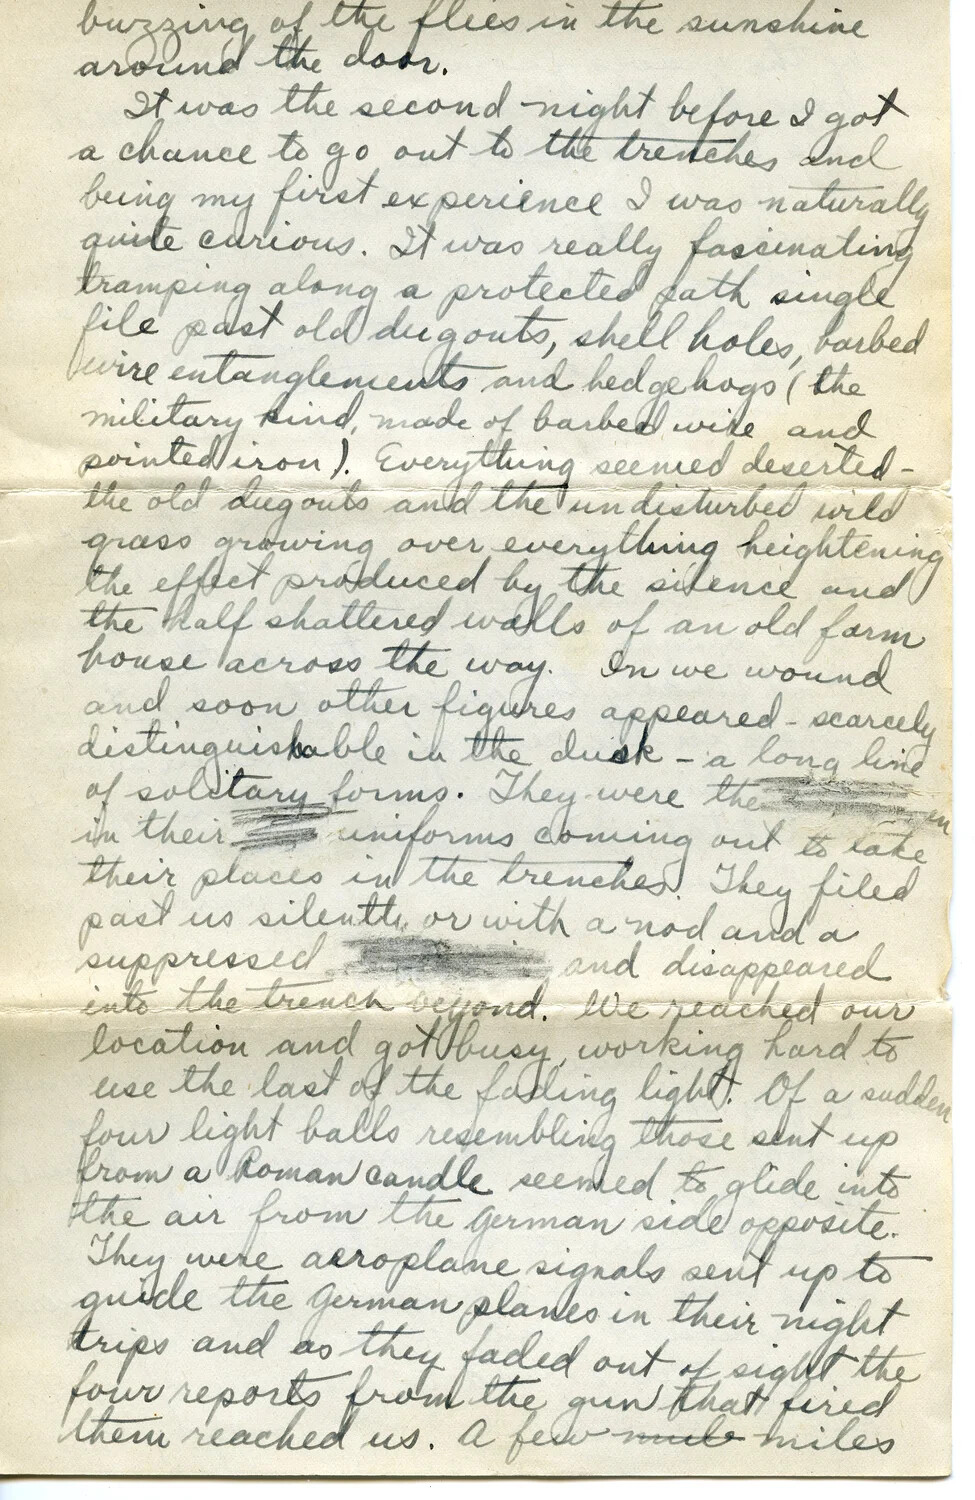 buzzing of the flies in the sunshine
around the door.
It was the second night before I got
a chance to go out to the trenches and
being my first experience I was naturally
quite curious. It was really fascinating
tramping along a protected path single
file past old dugouts, shell holes, barbed
wire entanglements and hedgehogs (the
military kind, made of barbed wire and
pointed iron). Everything seemed deserted -
the old dugouts and the undisturbed wild
grass growing over everything heightening
the effect produced by the silence and
the half shattered walls of an old farm
house across the way. In we wound
and soon other figures appeared - scarcely
distinguishable in the dusk - a long line
of solitary forms. They were the
in their uniforms coming out to take
their places in the trenches. They filed
past us silently or with a nod and a
suppressed and disappeared
into the trench beyond. We reached our
location and got busy, working hard to
use the last of the fading light. Of a sudden
four light balls resembling those sent up
from a Roman candle seemed to glide into
the air from the German side opposite.
They were aeroplane signals sent up to
guide the German planes in their night
trips and as they faded out of sight the
four reports from the gun that fired
them reached us. A few miles